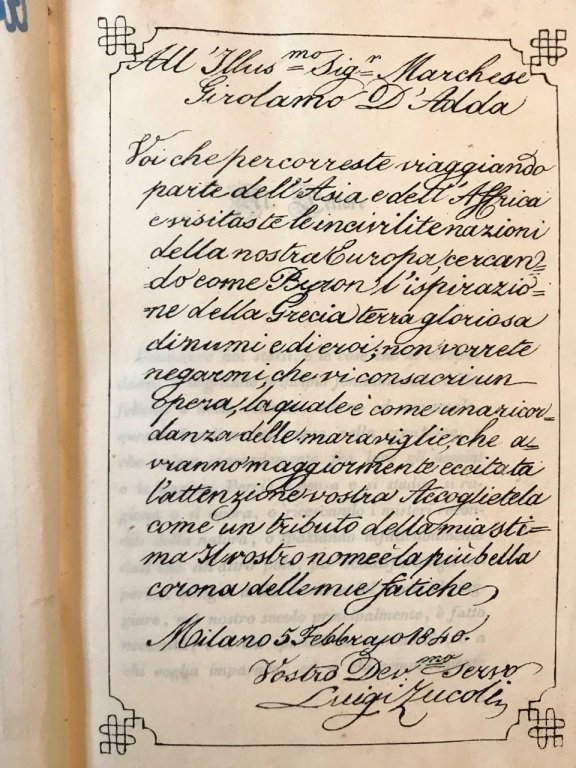 All'Illus.mo Sig.r Marchese
Girolamo D'Adda
Voi che percorreste viaggiando
parte dell'Asia e dell'Affrica
e visitaste le incivilite nazioni
della nostra Europa, cercan=
do come Byron l'ispirazio=
ne della Grecia terra gloriosa
di numi e di eroi, non vorrete
negarmi, che vi consacri un
opera, la quale è come una ricor=
danza delle maraviglie, che a=
vranno maggiormente eccitata
l'attenzione vostra Accoglietela
come un tributo della mia sti=
ma Il vostro nome è la più bella
corona delle mie fatiche
Milano 5 Febbrajo 1840.
Vostro Dev.mo Servo
Luigi Zucoli